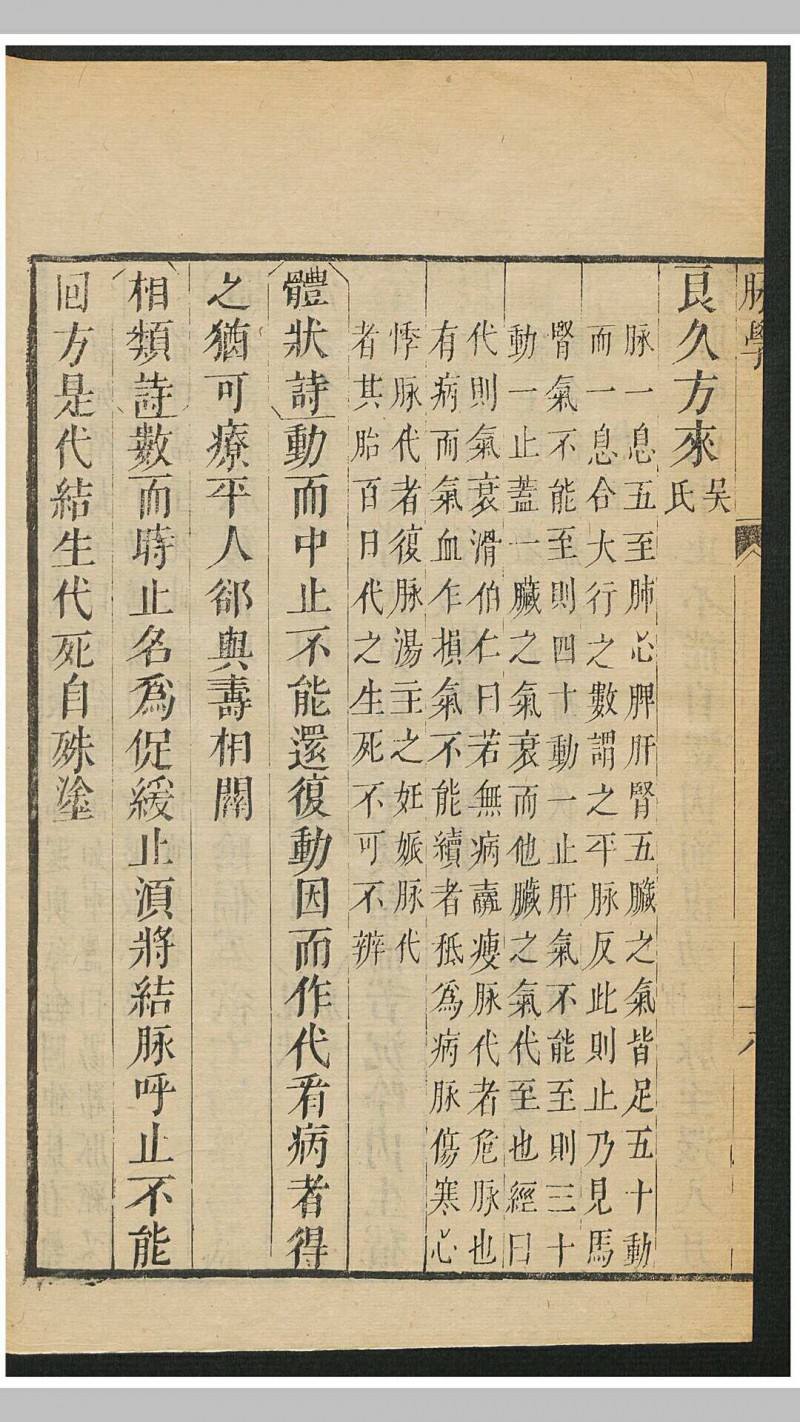 脉學
十八
良久方來吳氏
脉一息五至肺心脾肝腎五臟之氣皆足五十動
而一息合大衍之數謂之平脉反此則止乃見焉
腎氣不能至則四十動一止肝氣不能至則三十
動一止蓋一臟之氣衰而他臟之氣代至也經曰
代則氣衰滑伯仁曰若無病羸瘦脉代者危脉也
有病而氣血乍損氣不能續者秪爲病脉傷寒心
悸脉代者復脉湯主之妊娠脉代
者其胎百日代之生死不可不辨
體狀詩動而中止不能還復動因而作代看病者得
之猶可療平人郤與壽相關
相類詩數而時止名爲促緩止湏將結脉呼止不能
回方是代結生代死自殊塗